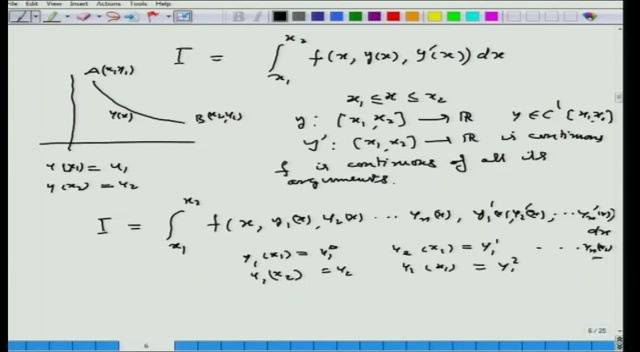 File Edit View Insert Actions Tools Help
I = ∫_{x₁}^{x₂} f(x, y(x), y'(x)) dx
A(x₁,y₁)
y(x)
B(x₂,y₂)
x₁ ≤ x ≤ x₂
y : [x₁,x₂] → ℝ y ∈ C¹[x₁,x₂]
y' : [x₁,x₂] → ℝ is continuous
f is continuous of all its
arguments.
y(x₁) = y₁
y(x₂) = y₂
I = ∫_{x₁}^{x₂} f(x, y₁(x), y₂(x) ... yₙ(x), y₁'(x), y₂'(x), ... yₙ'(x))
dx
y₁(x₁) = y₁⁰ y₂(x₁) = y₁¹ ...
y₁(x₂) = y₂ y₂(x₁) = y₁²
6/25
6